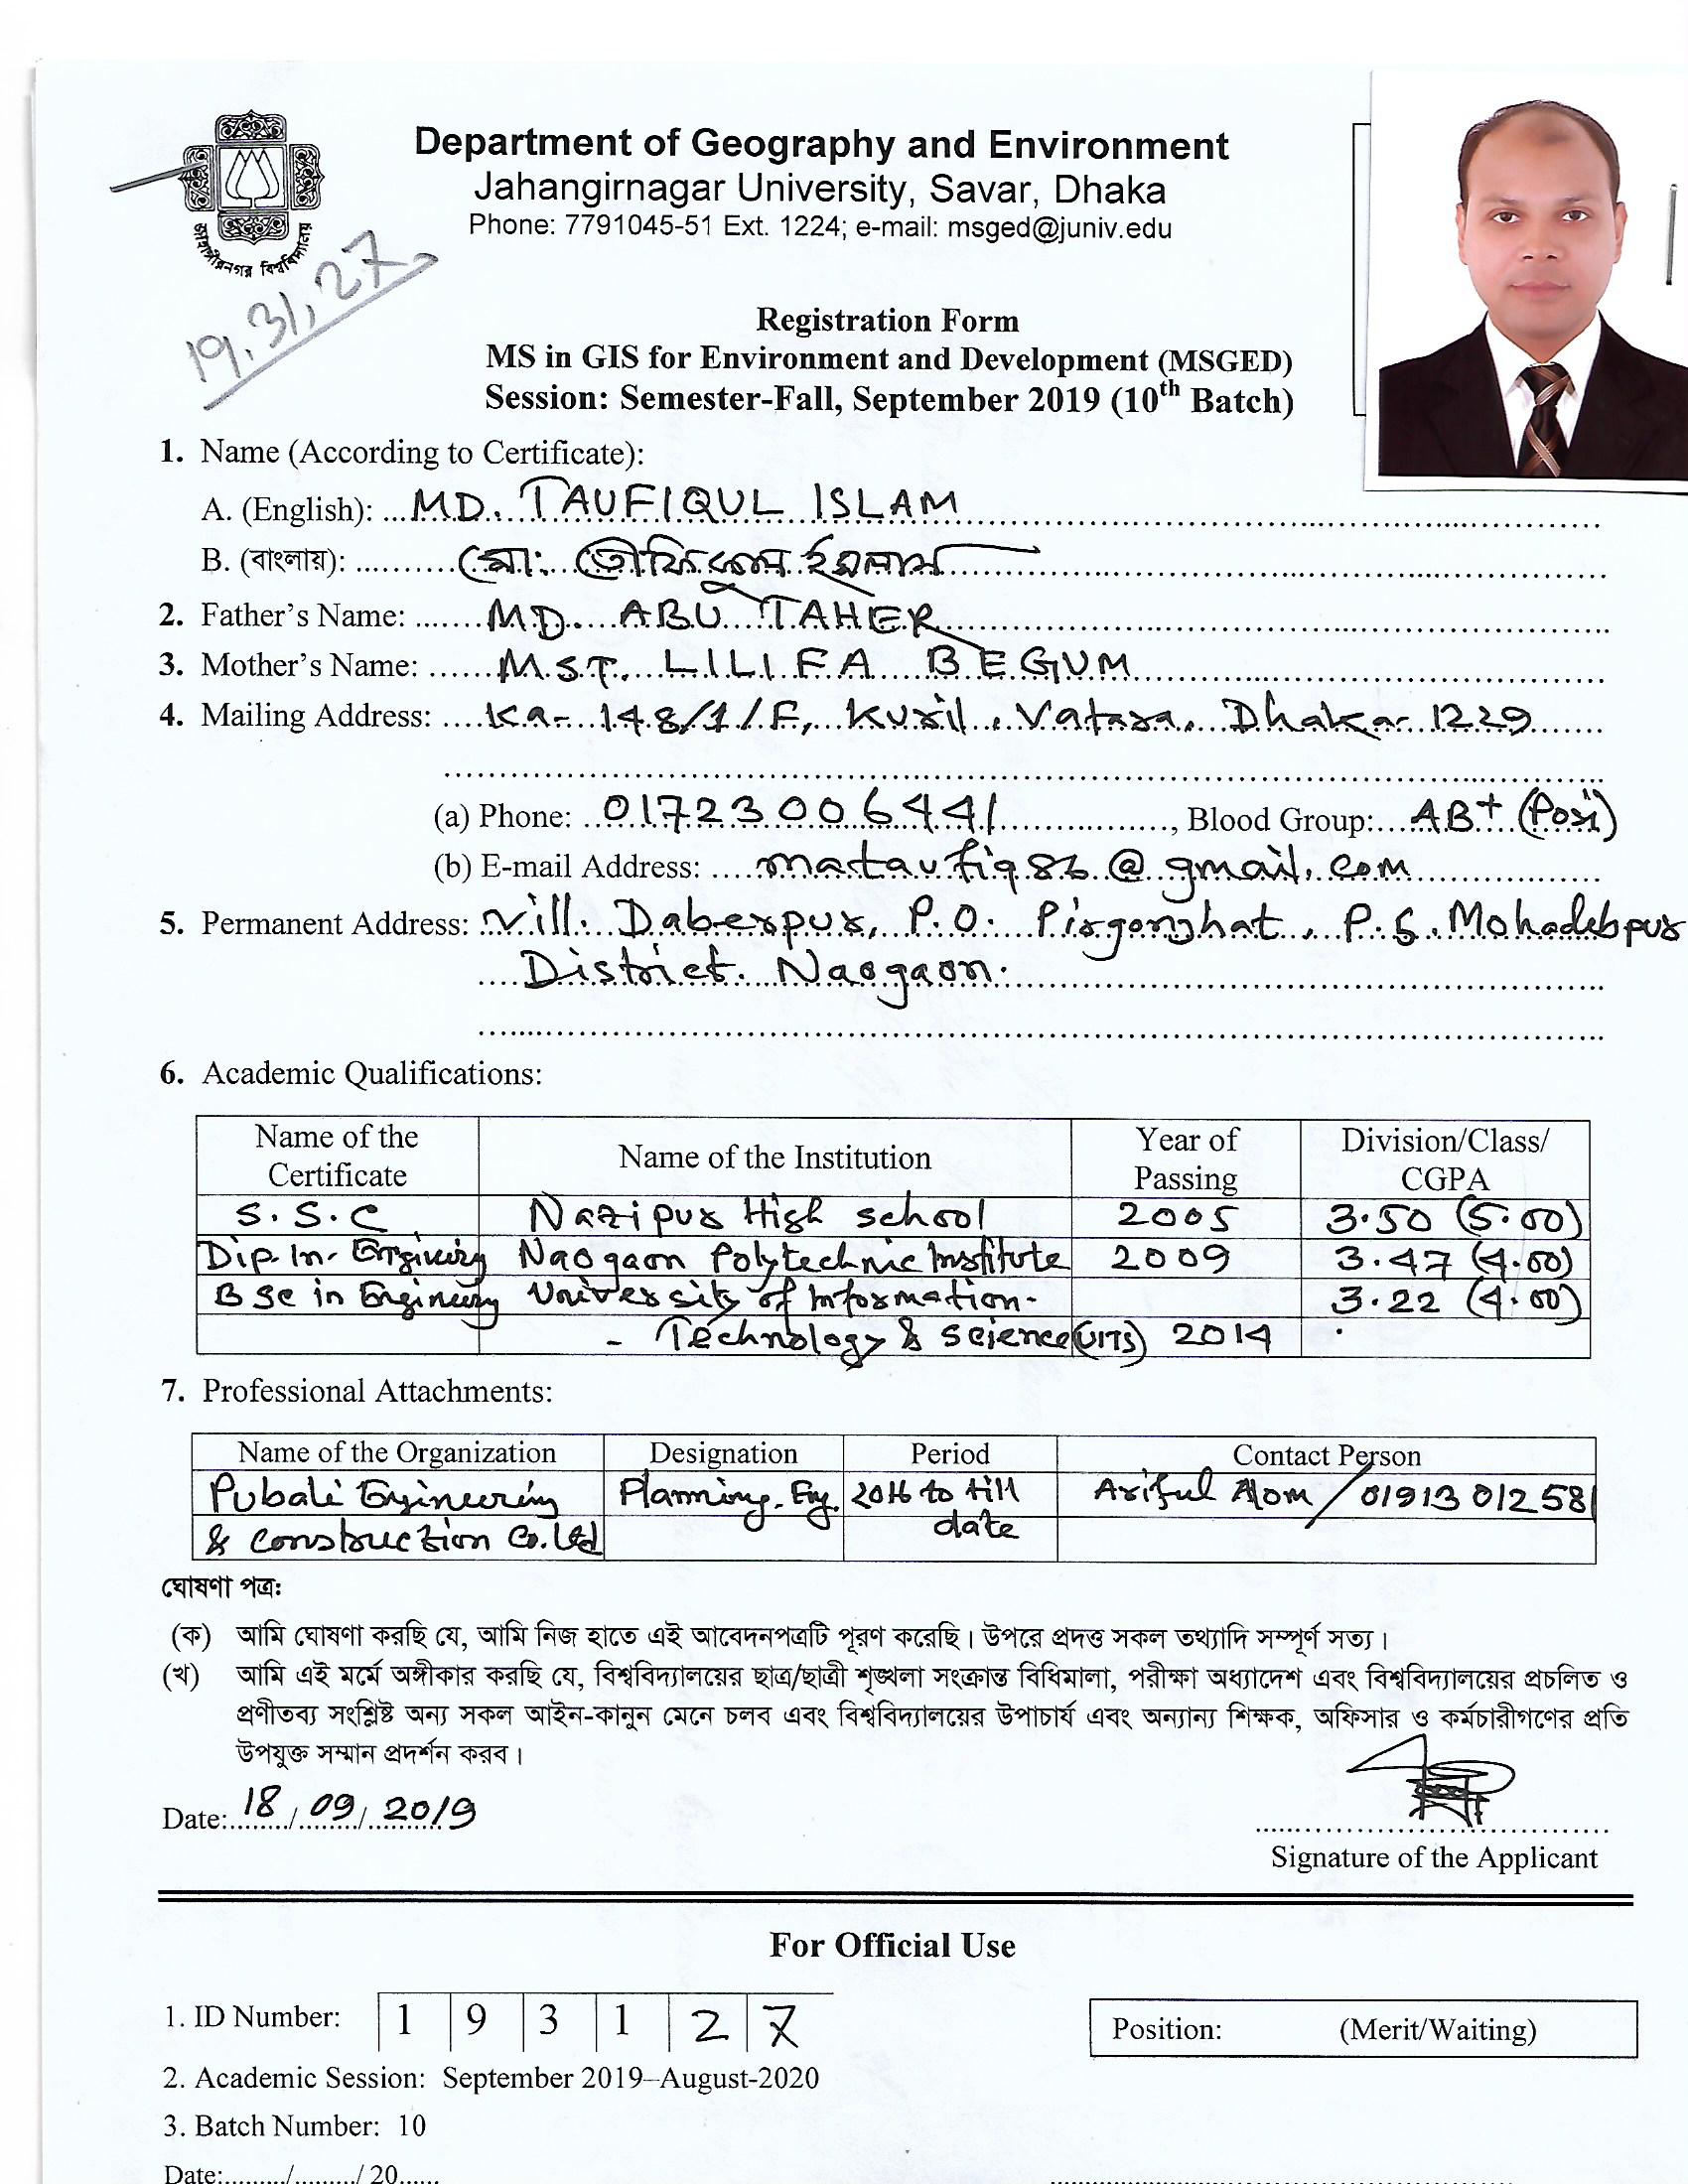 Department of Geography and Environment
Jahangirnagar University, Savar, Dhaka
Phone: 7791045-51 Ext. 1224; e-mail: msged@juniv.edu
জাহাঙ্গীরনগর বিশ্ববিদ্যালয়
19,31,27
Registration Form
MS in GIS for Environment and Development (MSGED)
Session: Semester-Fall, September 2019 (10th Batch)
1. Name (According to Certificate):
A. (English): MD. TAUFIQUL ISLAM
B. (বাংলায়): মো: তৌফিকুল ইসলাম
2. Father's Name: MD. ABU TAHER
3. Mother's Name: MST. LILIFA BEGUM
4. Mailing Address: Ka- 148/1/F, Kuril, Vatara, Dhaka- 1229
(a) Phone: 01723006441, Blood Group: AB+ (Posi)
(b) E-mail Address: mataufiq86@gmail.com
5. Permanent Address: Vill. Daberpur, P.O. Pirgonjhat, P.S. Mohadebpur
District. Naogaon.
6. Academic Qualifications:
Name of the Certificate Name of the Institution Year of Passing Division/Class/CGPA
S.S.C Nazipur High school 2005 3.50 (5.00)
Dip. In- Engineering Naogaon Polytechnic Institute 2009 3.47 (4.00)
BSc in Engineering University of Information- 3.22 (4.00)
- Technology & Science (UITS) 2014
7. Professional Attachments:
Name of the Organization Designation Period Contact Person
Pubali Engineering Planning. Eng. 2016 to till Ariful Alom / 01913012581
& Construction Co. Ltd date
ঘোষণা পত্র:
(ক) আমি ঘোষণা করছি যে, আমি নিজ হাতে এই আবেদনপত্রটি পূরণ করেছি। উপরে প্রদত্ত সকল তথ্যাদি সম্পূর্ণ সত্য।
(খ) আমি এই মর্মে অঙ্গীকার করছি যে, বিশ্ববিদ্যালয়ের ছাত্র/ছাত্রী শৃঙ্খলা সংক্রান্ত বিধিমালা, পরীক্ষা অধ্যাদেশ এবং বিশ্ববিদ্যালয়ের প্রচলিত ও
প্রণীতব্য সংশ্লিষ্ট অন্য সকল আইন-কানুন মেনে চলব এবং বিশ্ববিদ্যালয়ের উপাচার্য এবং অন্যান্য শিক্ষক, অফিসার ও কর্মচারীগণের প্রতি
উপযুক্ত সম্মান প্রদর্শন করব।
Date: 18/09/2019
Signature of the Applicant
For Official Use
1. ID Number: 1 9 3 1 2 7
Position: (Merit/Waiting)
2. Academic Session: September 2019–August-2020
3. Batch Number: 10
Date:......../......../20......